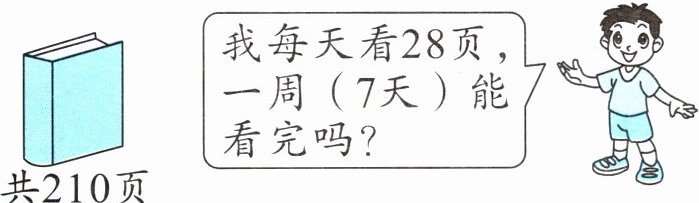 我每天看28页，
一周（7天）能
看完吗？
共210页